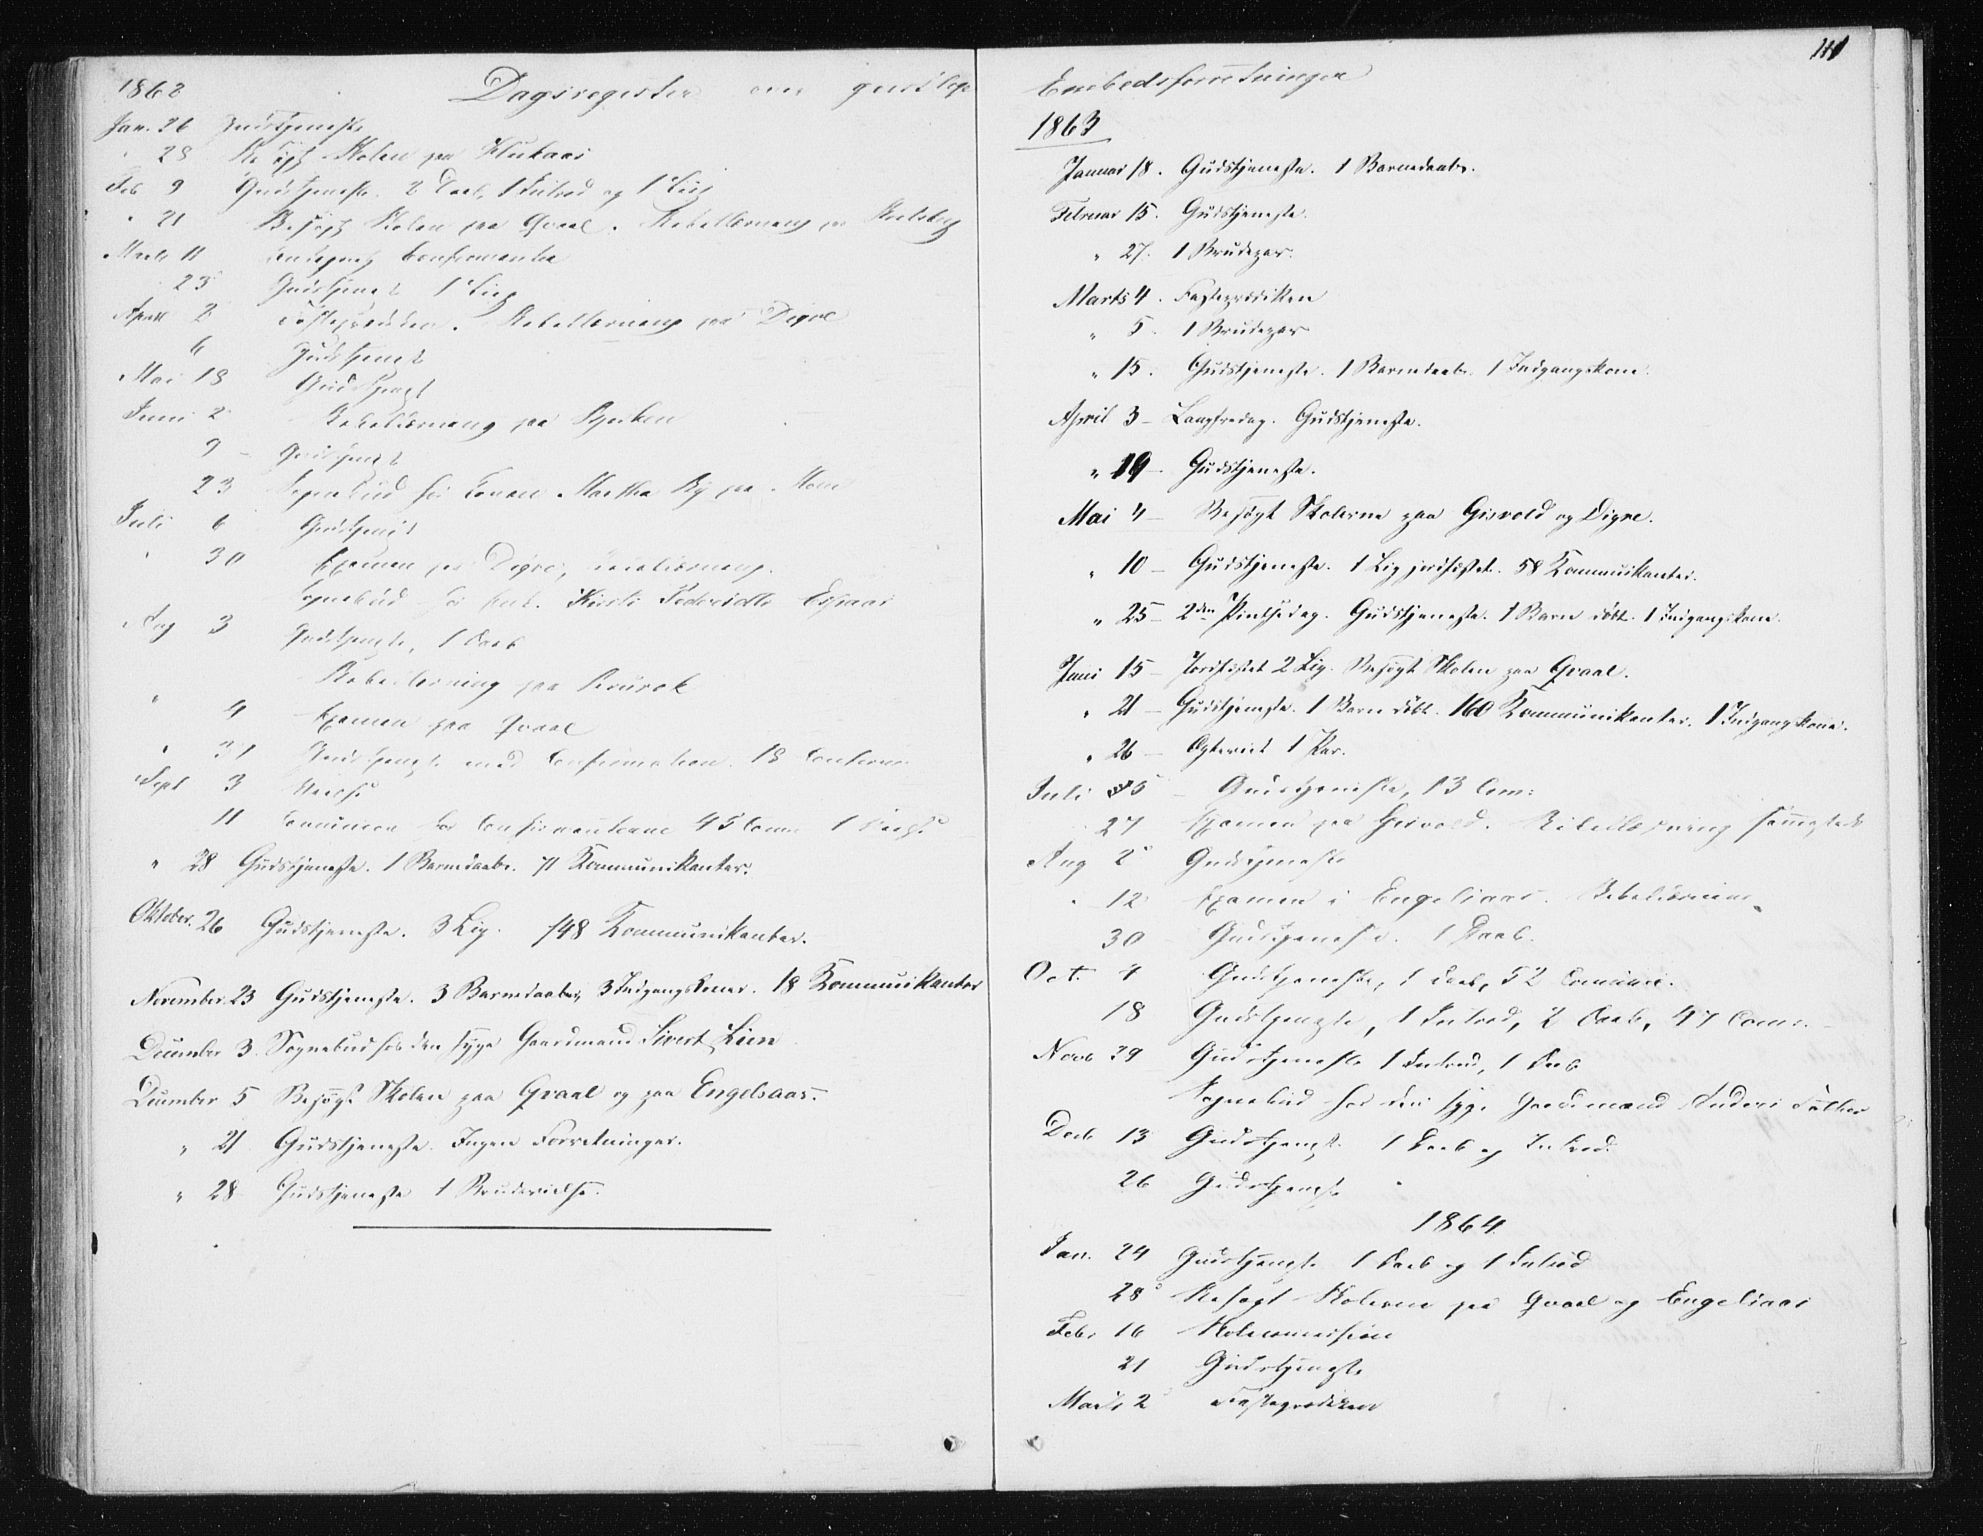 1862 Dagsregister over geistlige
Jan. 26 Gudstjeneste
" 28 Besøgt Skolen paa Klukaas
Feb 9 Gudstjeneste. 2 Daab, 1 Introd og 1 Liig
" 21 Besøgt Skolen paa Qvaal.
Marts 11 Confirmanter
23 Gudstjenest 1 Liig
April 2 Fasteprædiken. Bibellæsning paa Digre
6 Gudstjenest
Mai 18 Gudstjenest
Juni 2 Bibellæsning paa
9 - Gudstjenest
23 Sognebud hos Konen Martha By paa Moen
Juli 6 Gudstjenest
" 30 Examen paa Digre, Bibellæsning.
Sognebud hos Kirsti Pedersdtr Espaas
Aug 3 Gudstjeneste, 1 Daab
Bibellæsning paa
" 4 Examen paa Qvaal
" 31 Gudstjeneste med Confirmation. 18
Sept 3
11 Communion for Confirmanterne 45 Comm 1
" 28 Gudstjeneste. 1 Barnedaab. 71 Kommunikanter.
Oktober. 26 Gudstjeneste. 3 Lig. 148 Kommunikanter.
November. 23 Gudstjeneste. 3 Barnedaaber, 3 Indgangskoner. 18 Kommunikanter
December 3. Sognebud hos den syge Gaardmand Sivert Lien
December 5 Besøgt Skolen paa Qvaal og paa Engelsaas.
" 21 Gudstjeneste. Ingen Forretninger.
" 28 Gudstjeneste 1 Brudevielse.
111
Embedsforretninger
1863
Januar 18. Gudstjeneste. 1 Barnedaab.
Februar 15. Gudstjeneste.
" 27. 1 Brudepar.
Marts 4. Fasteprædiken
" 5. 1 Brudepar
" 15. Gudstjeneste. 1 Barnedaab. 1 Indgangskone.
April 3 - Langfredag. Gudstjeneste.
" 19 - Gudstjeneste.
Mai 4 - Besøgt Skolerne paa Gisvold og Digre.
" 10 - Gudstjeneste. 1 Lig jordfæstet. 58 Kommunikanter.
" 25 - 2den Pintsedag. Gudstjeneste. 1 Barn døbt. 1 Indgangskone.
Juni 15 - Jordfæstet 2 Lig. Besøgt Skolen paa Qvaal.
" 21 - Gudstjeneste. 1 Barn døbt. 160 Kommunikanter. 1 Indgangskone.
" 26 - Ægteviet 1 Par.
Juli 5 - Gudstjeneste, 13 Com:
27 Examen paa Gisvold. Bibellæsning sammesteds
Aug 2 Gudstjeneste
" 12 Examen i Engelsaas. Bibellæsning
30 Gudstjeneste. 1 Daab.
Oct. 4 Gudstjeneste, 1 Daab, 52 Commun.
18 Gudstjeneste, 1 Introd, 2 Daab, 47 Comm.
Novb 29 Gudstjeneste 1 Introd, 1 Daab
Sognebud hos den syge Gaardmand Anders
Decb 13 Gudstjeneste. 1 Daab og Introd.
26 Gudstjeneste
1864.
Jan. 24 Gudstjeneste 1 Daab og 1 Introd
28 Besøgt Skolerne paa Qvaal og Engelsaas
Febr 16 Skolecommission
21 Gudstjeneste
Marts 2 Fasteprædiken